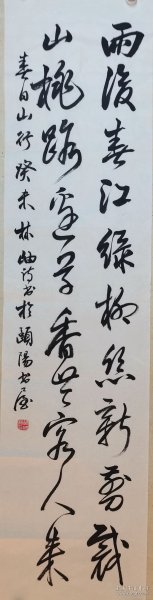 雨後春江綠柳絲新剪裁
山桃路邊早香世客人來
春日山行癸未林岫诗书於頤陽書屋